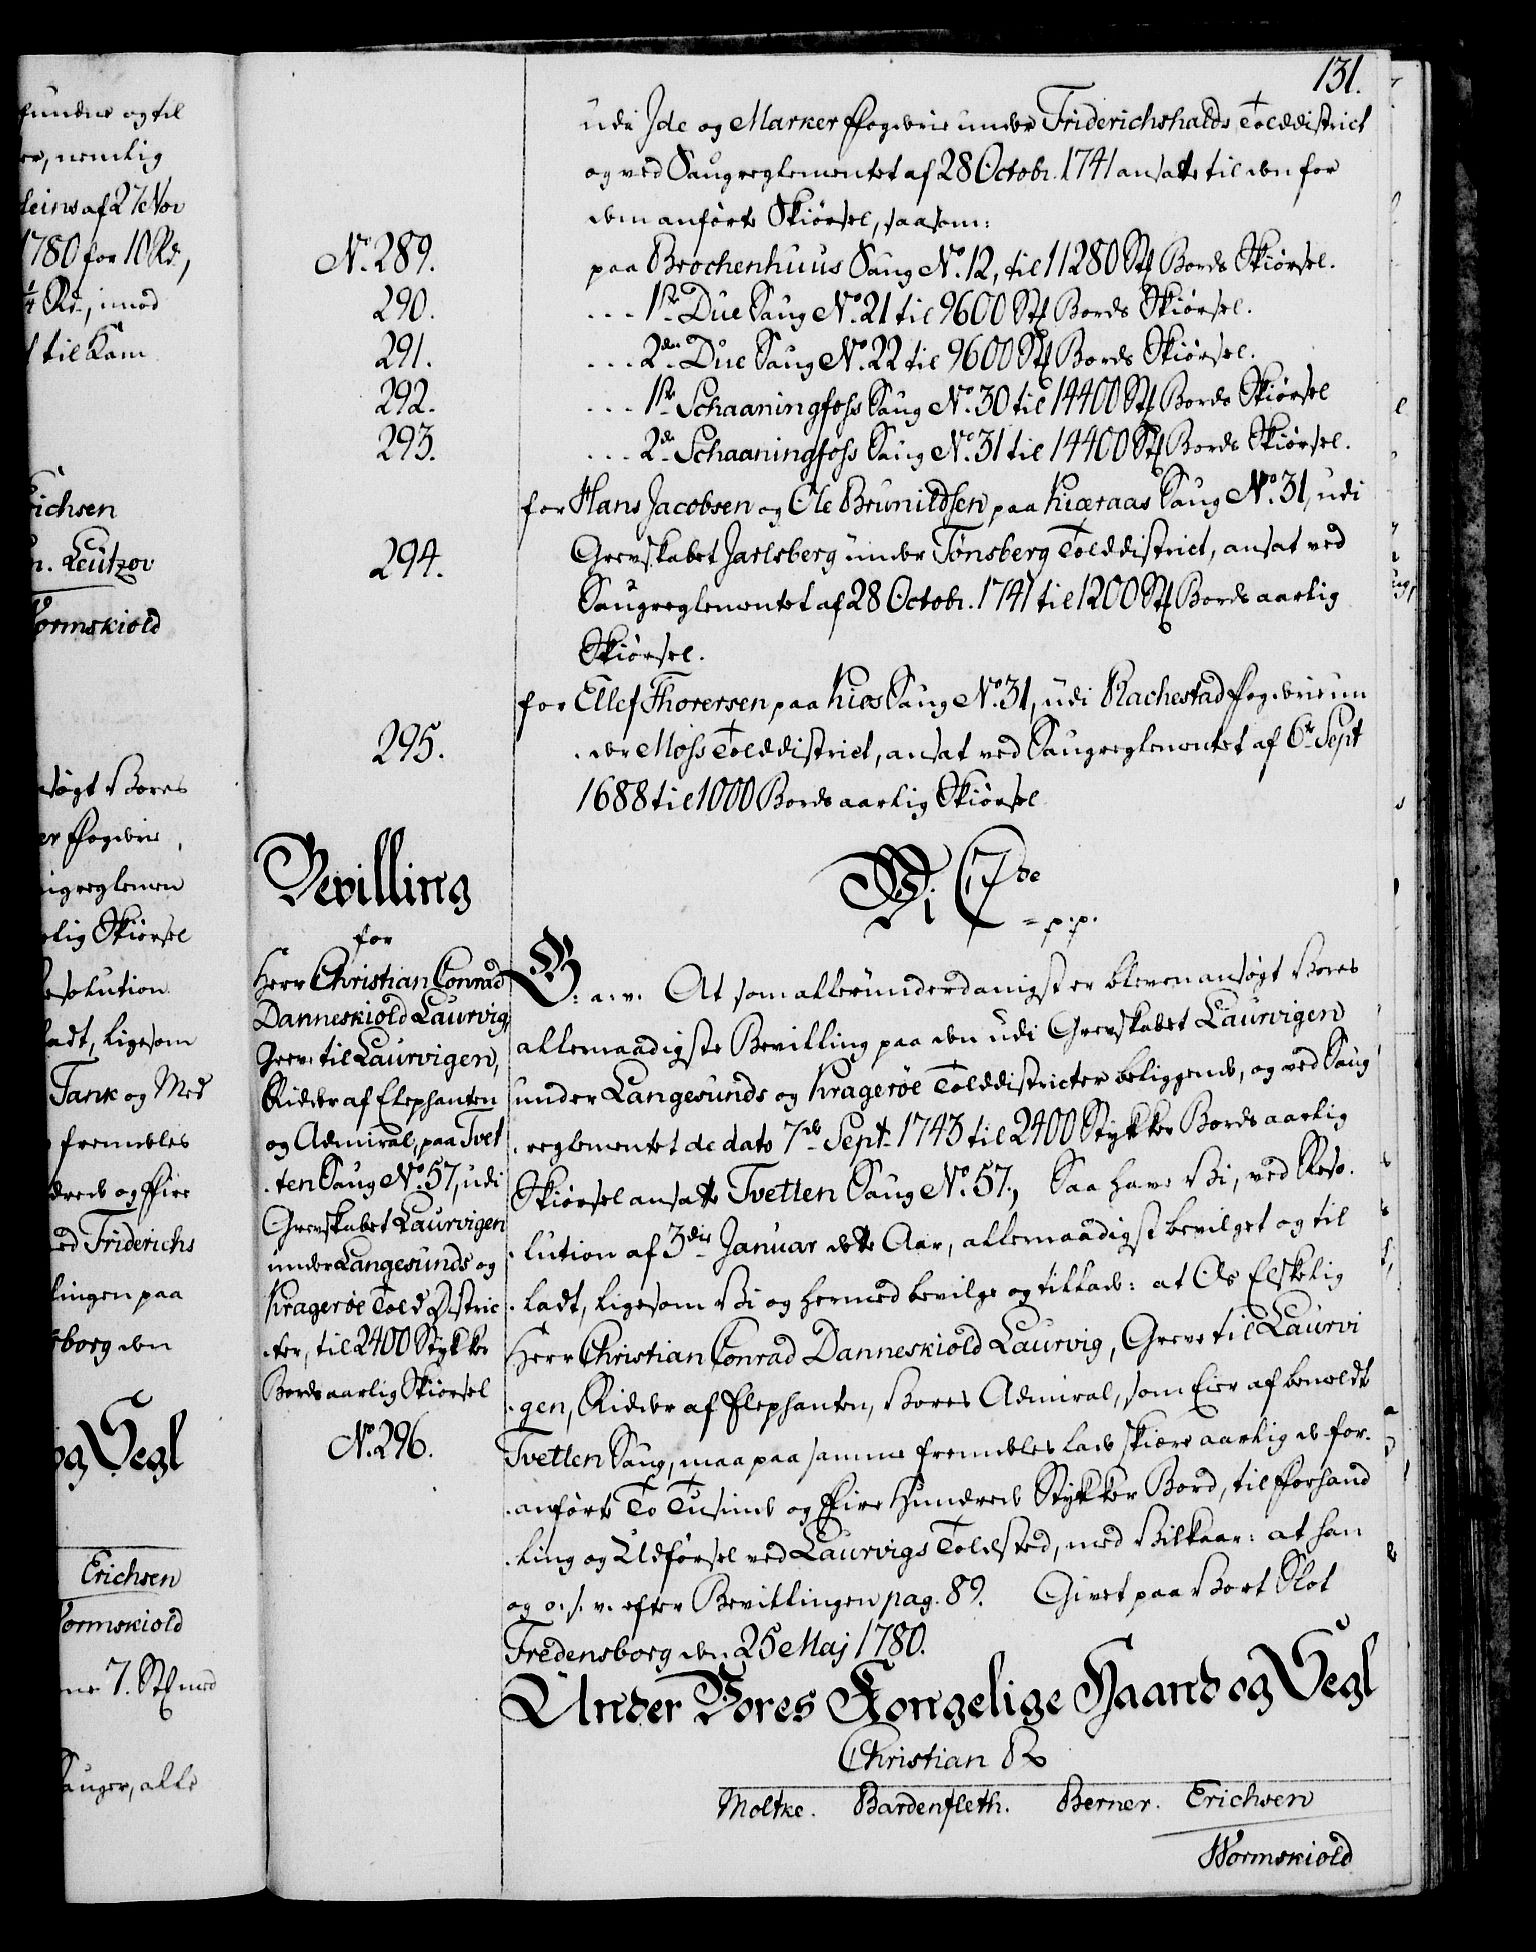 131.
udi Jde og Marker Fogderie under Friderichshalds Tolddistrict
og ved Saugreglementet af 28 Octobr. 1741 ansatte til den for
dem anførte Skiørsel, saasom:
No. 289. paa Brochenhuus Saug No. 12, til 11280 St. Bords Skiørsel.
290. ... 1ste Due Saug No. 21 til 9600 St. Bords Skiørsel.
291. ... 2den Due Saug No. 22 til 9600 St. Bords Skiørsel.
292. ... 1ste Schaaningfoss Saug No. 30 til 14400 St. Bords Skiørsel
293. ... 2de Schaaningfoss Saug No. 31 til 14400 St. Bords Skiørsel.
for Hans Jacobsen og Ole Brunildsen paa Kiæraas Saug No. 31, udi
294. Grevskabet Jarlsberg under Tønsberg Tolddistrict, ansat ved
Saugreglementet af 28 Octobr. 1741 til 1200 St. Bords aarlig
Skiørsel.
for Ellef Thorersen paa Kiøs Saug No. 31, udi Rachestad Fogderie un
295. der Moss Tolddistrict, ansat ved Saugreglementet af 6te Sept
1688 til 1000 Bords aarlig Skiørsel
Bevilling
for
Herr Christian Conrad
Danneskiold Laurvig,
Greve til Laurvigen,
Ridder af Elephanten
og Admiral, paa Tvet
ten Saug No. 57, udi
Grevskabet Laurvigen
under Langesunds og
Kragerøe Told Distric
ter, til 2400 Stykker
Bords aarlig Skiørsel
No. 296.
Vi C 7de
= p.p.
G. a. v. At som allerunderdanigst er bleven ansøgt Vores
allernaadigste Bevilling paa den udi Grevskabet Laurvigen
under Langesunds og Kragerøe Tolddistricter beliggende, og ved Saug
reglementet de dato 7de Sept. 1743 til 2400 Stykker Bords aarlig
Skiørsel ansatte Tvetten Saug No. 57., Saa have Vi, ved Reso
lution af 3die Januar dette Aar, allernaadigst bevilget og til
ladt, ligesom Vi og hermed bevilge og tillade: at Os Elskelig
Herr Christian Conrad Danneskiold Laurvig, Greve til Laurvi
gen, Ridder af Elephanten, Vores Admiral, som Eier af bemeldte
Tvetten Saug, maa paa samme fremdeles lade skiære aarlig de for
anførte To Tusinde og Fire Hundrede Stykker Bord, til Forhand
ling og Udførsel ved Laurvigs Toldsted, med Vilkaar: at han
og o. s. v. efter Bevillingen pag. 89. Givet paa Vort Slot
Fredensborg den 25 Maj 1780.
Under Vores Kongelige Haand og Segl
Christian R
Moltke. Bardenfleth. Berner. Erichsen
Wormskiold